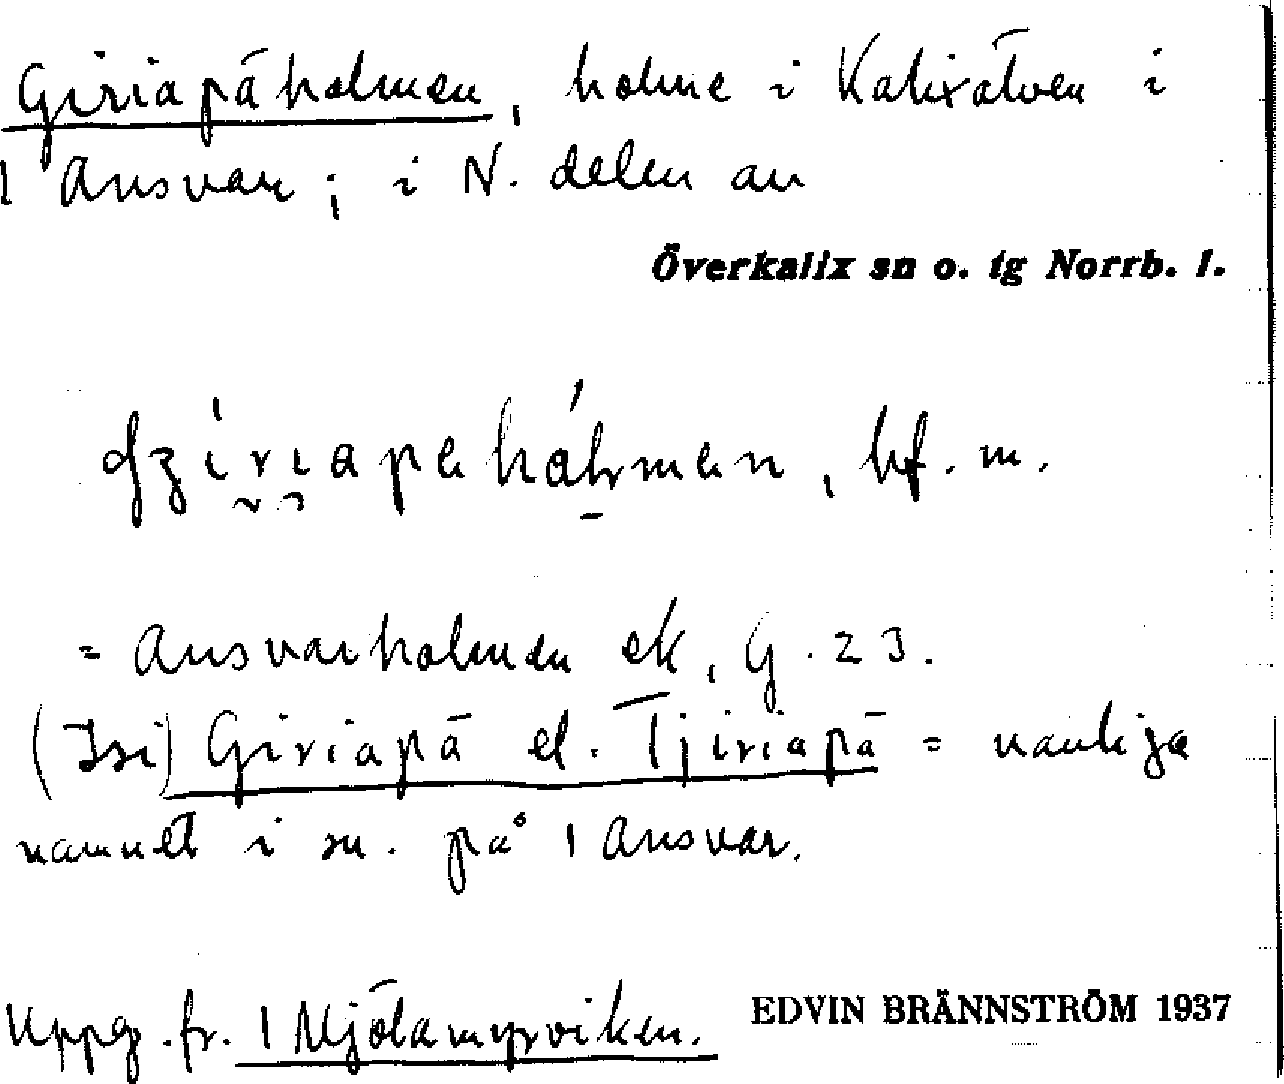 Giriapäholmen, holme i Kalixälven i
1 Ansvar; i N. delen av
Överkalix sn o. tg Norrb. l.
bf. m.
= Ansvarholmen ek, G. 23.
(Isi) Giriapä el. Tjiriapä = vanliga
namnet i sn. på 1 Ansvar.
Uppg. fr. 1 Mjölamyrviken.
EDVIN BRÄNNSTRÖM 1937